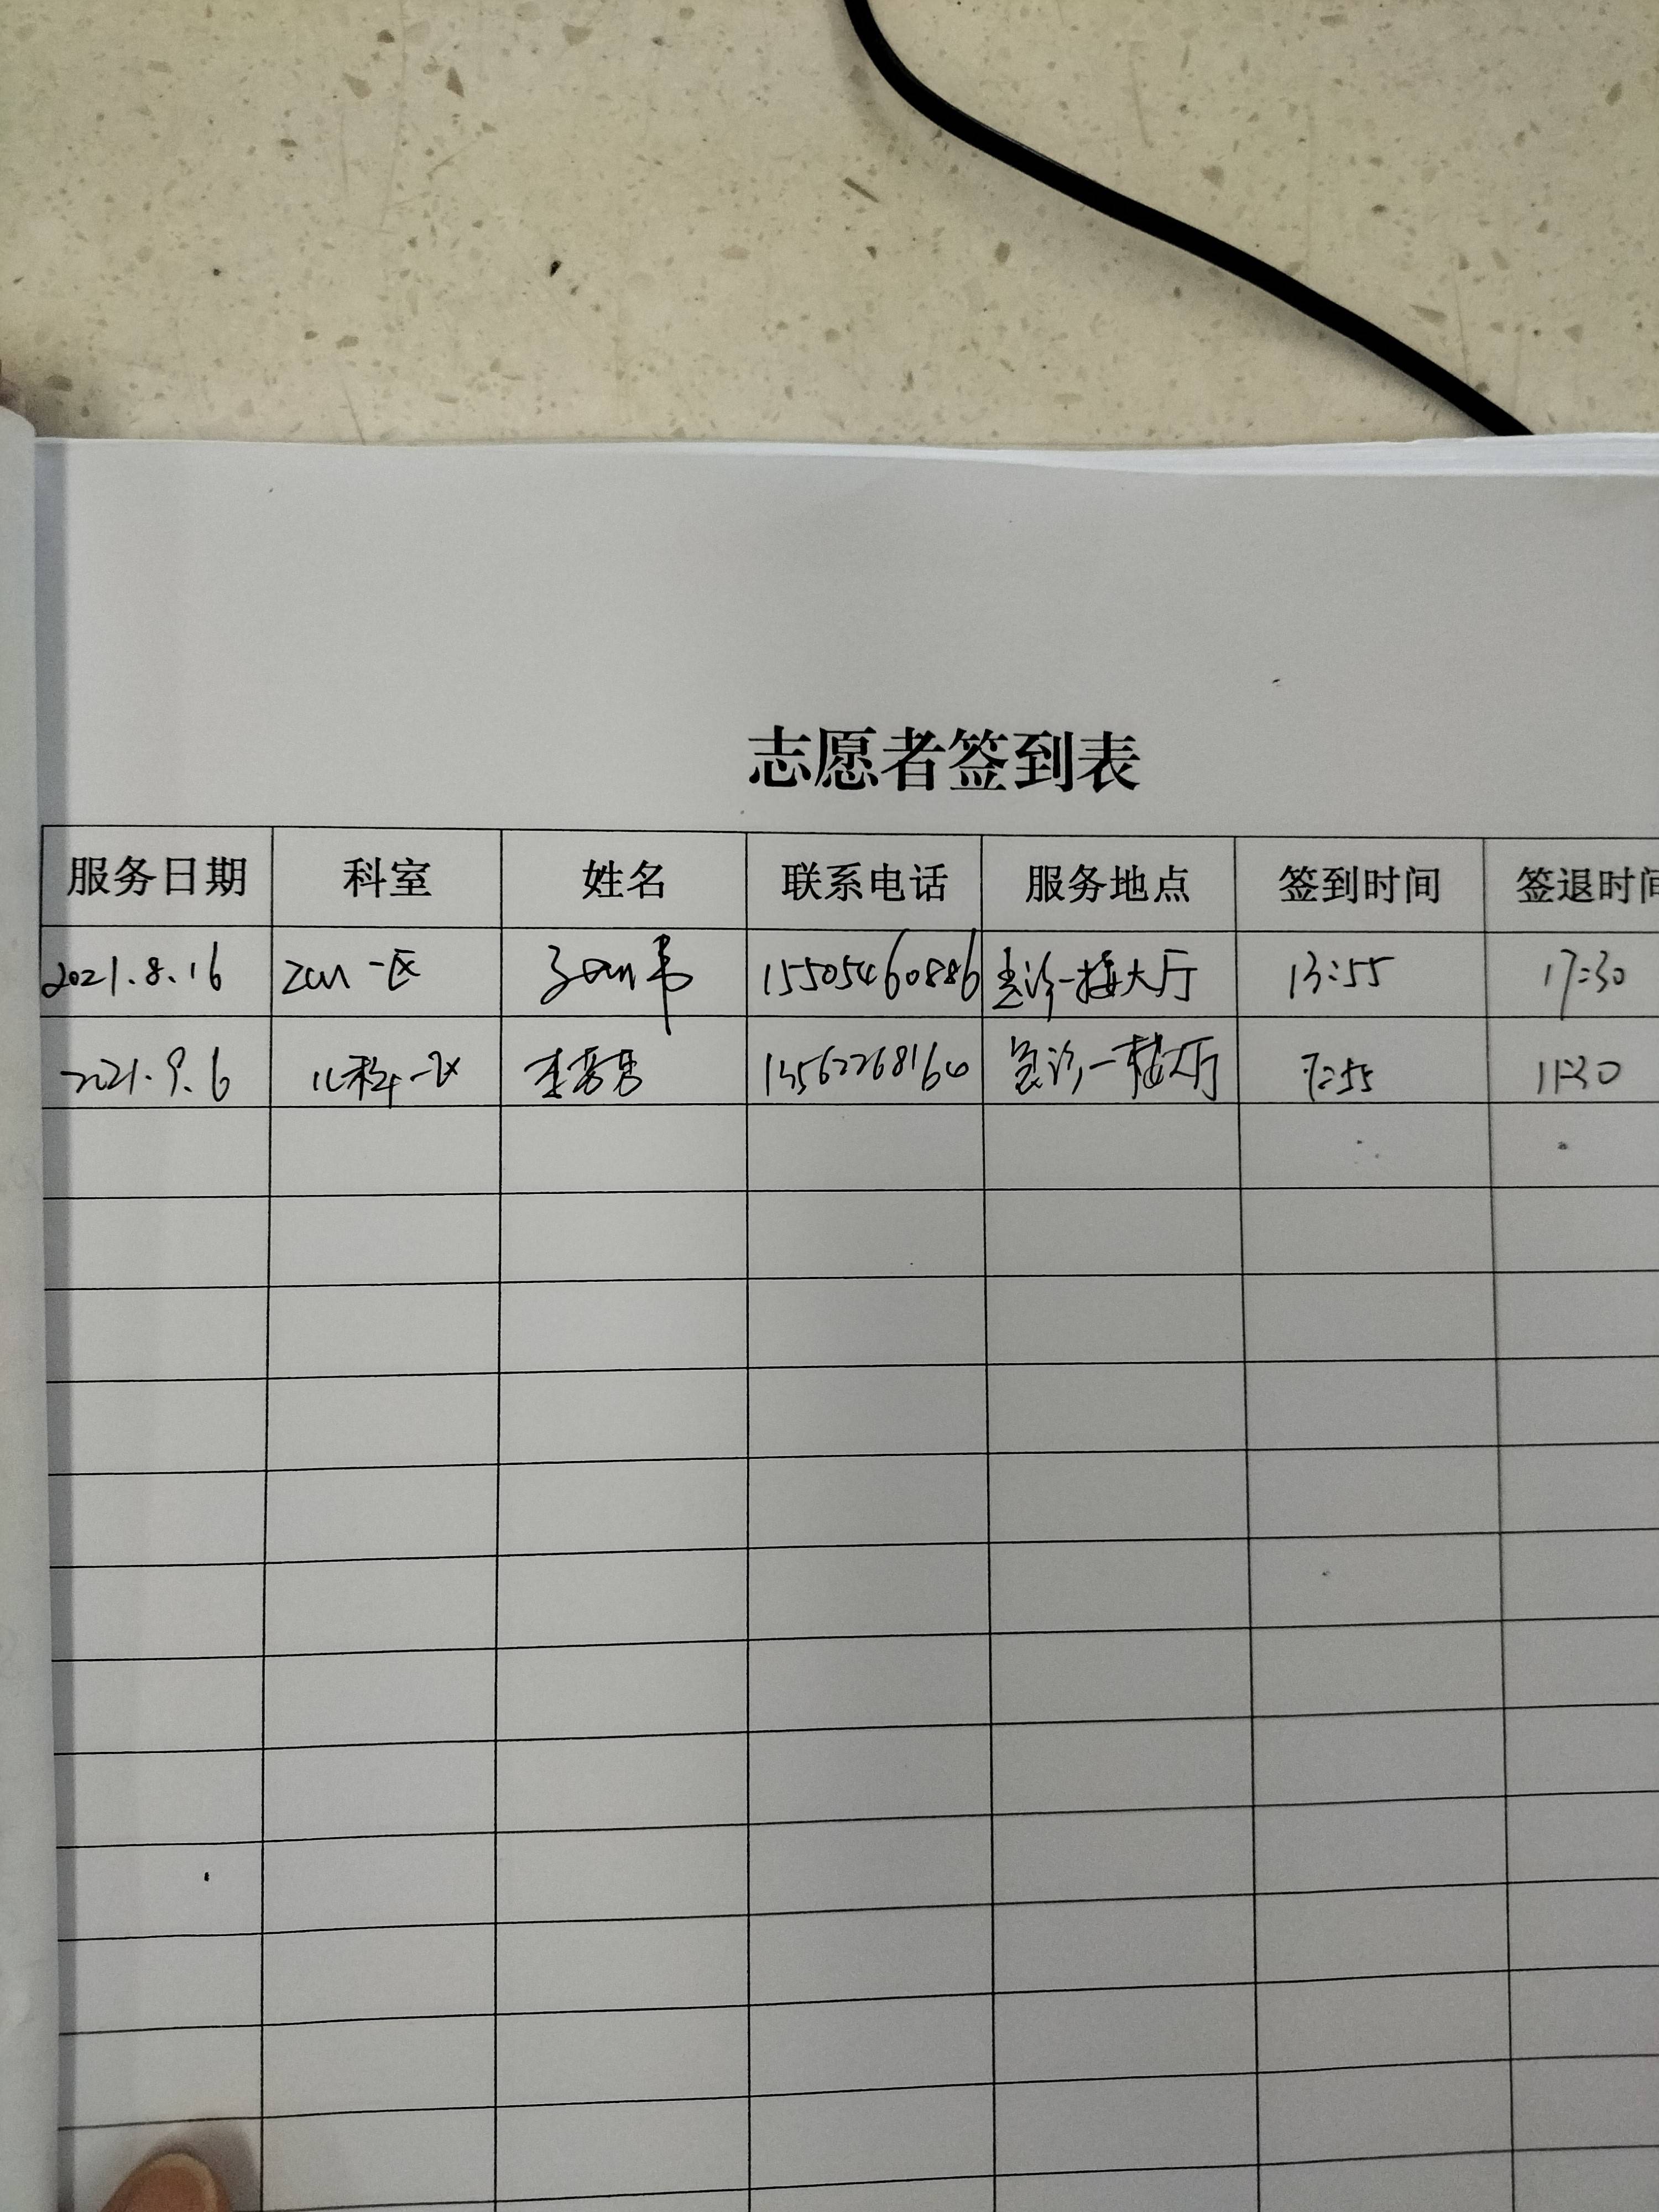 志愿者签到表
服务日期 科室 姓名 联系电话 服务地点 签到时间 签退时间
2021.8.16 ICU一区 15505460886 急诊一楼大厅 13:55 17:30
2021.9.6 儿科一区 李 13562268164 急诊一楼大厅 7:55 11:30